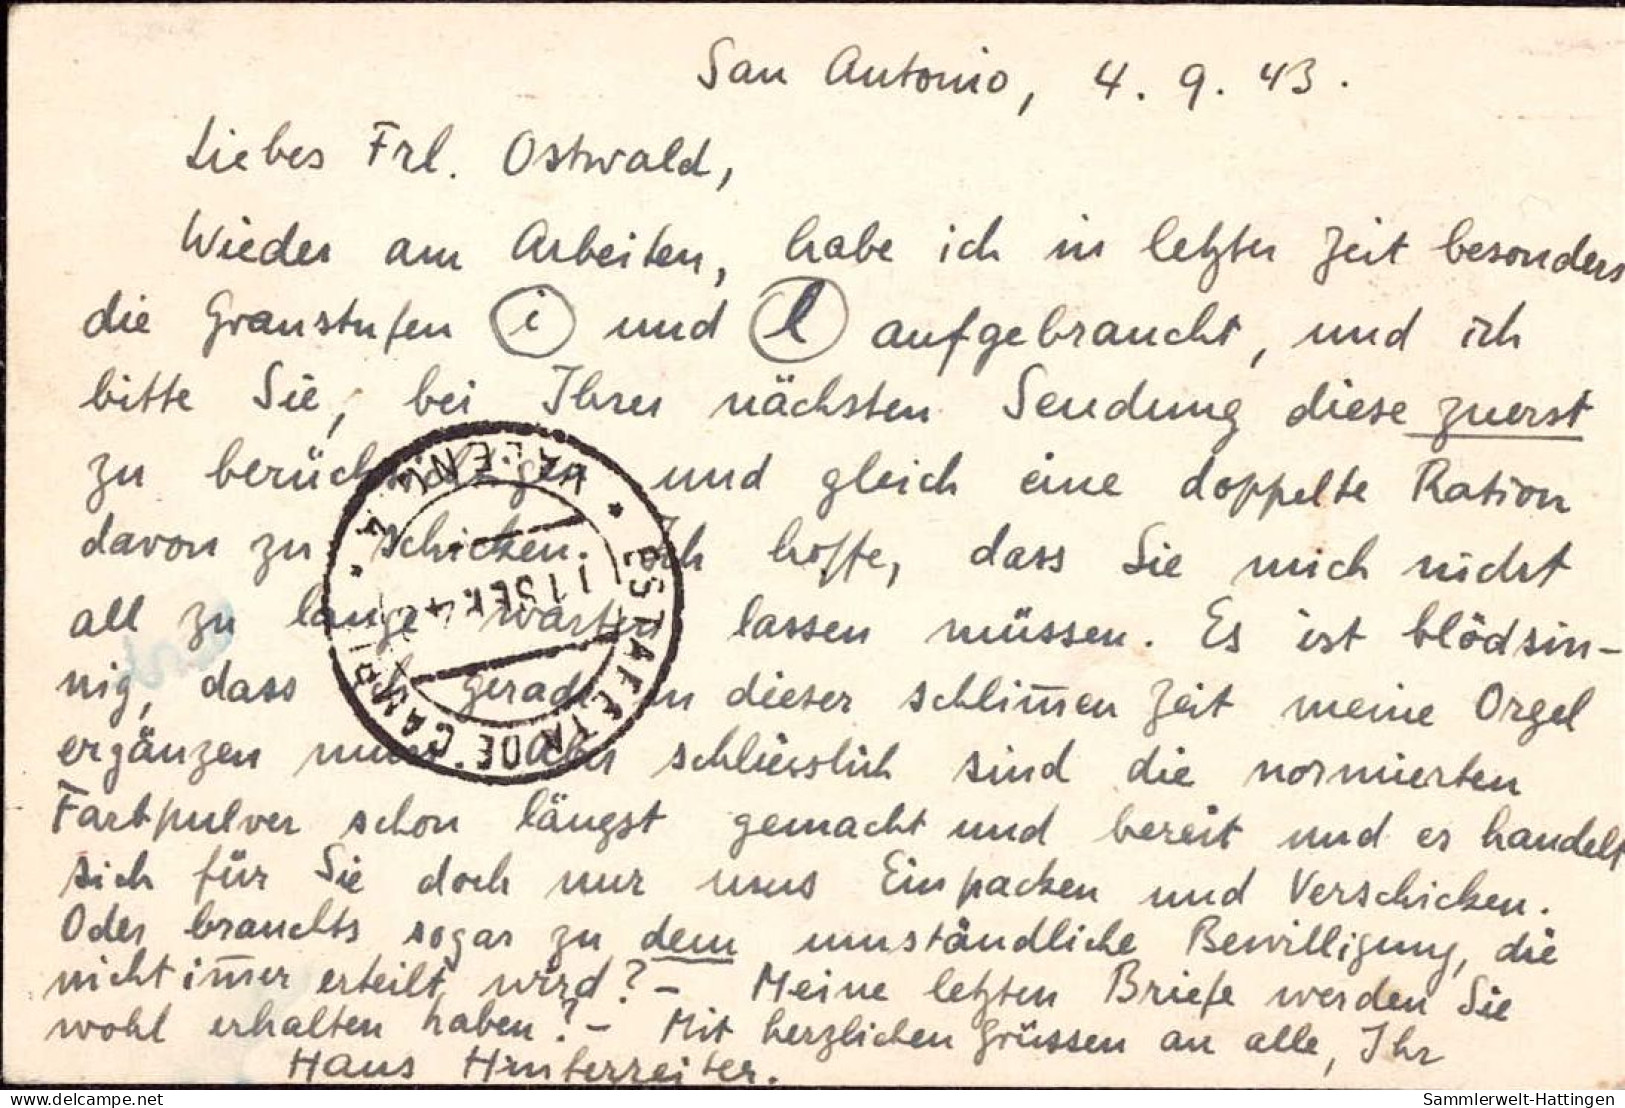 San Antonio, 4. 9. 43.
Liebes Frl. Ostwald,
Wieder am Arbeiten, habe ich in letzter Zeit besonders
die Graustufen i und l aufgebraucht, und ich
bitte Sie, bei Ihrer nächsten Sendung diese zuerst
zu berücksichtigen und gleich eine doppelte Ration
davon zu schicken. Ich hoffe, dass Sie mich nicht
all zu lange warten lassen müssen. Es ist blödsin-
nig, dass gerade in dieser schlim̅en Zeit meine Orgel
ergänzen muss. Aber schliesslich sind die normierten
Farbpulver schon längst gemacht und bereit und es handelt
sich für Sie doch nur ums Einpacken und Verschicken.
Oder brauchts sogar zu dem umständliche Bewilligung, die
nicht im̅er erteilt wird? – Meine letzten Briefe werden Sie
wohl erhalten haben? – Mit herzlichen Grüssen an alle, Ihr
Hans Hinterreiter.
* ESTAFETA DE CAMPI * VALENCIA
11 SEP. 4
www.delcampe.net
Sammlerwelt-Hattingen